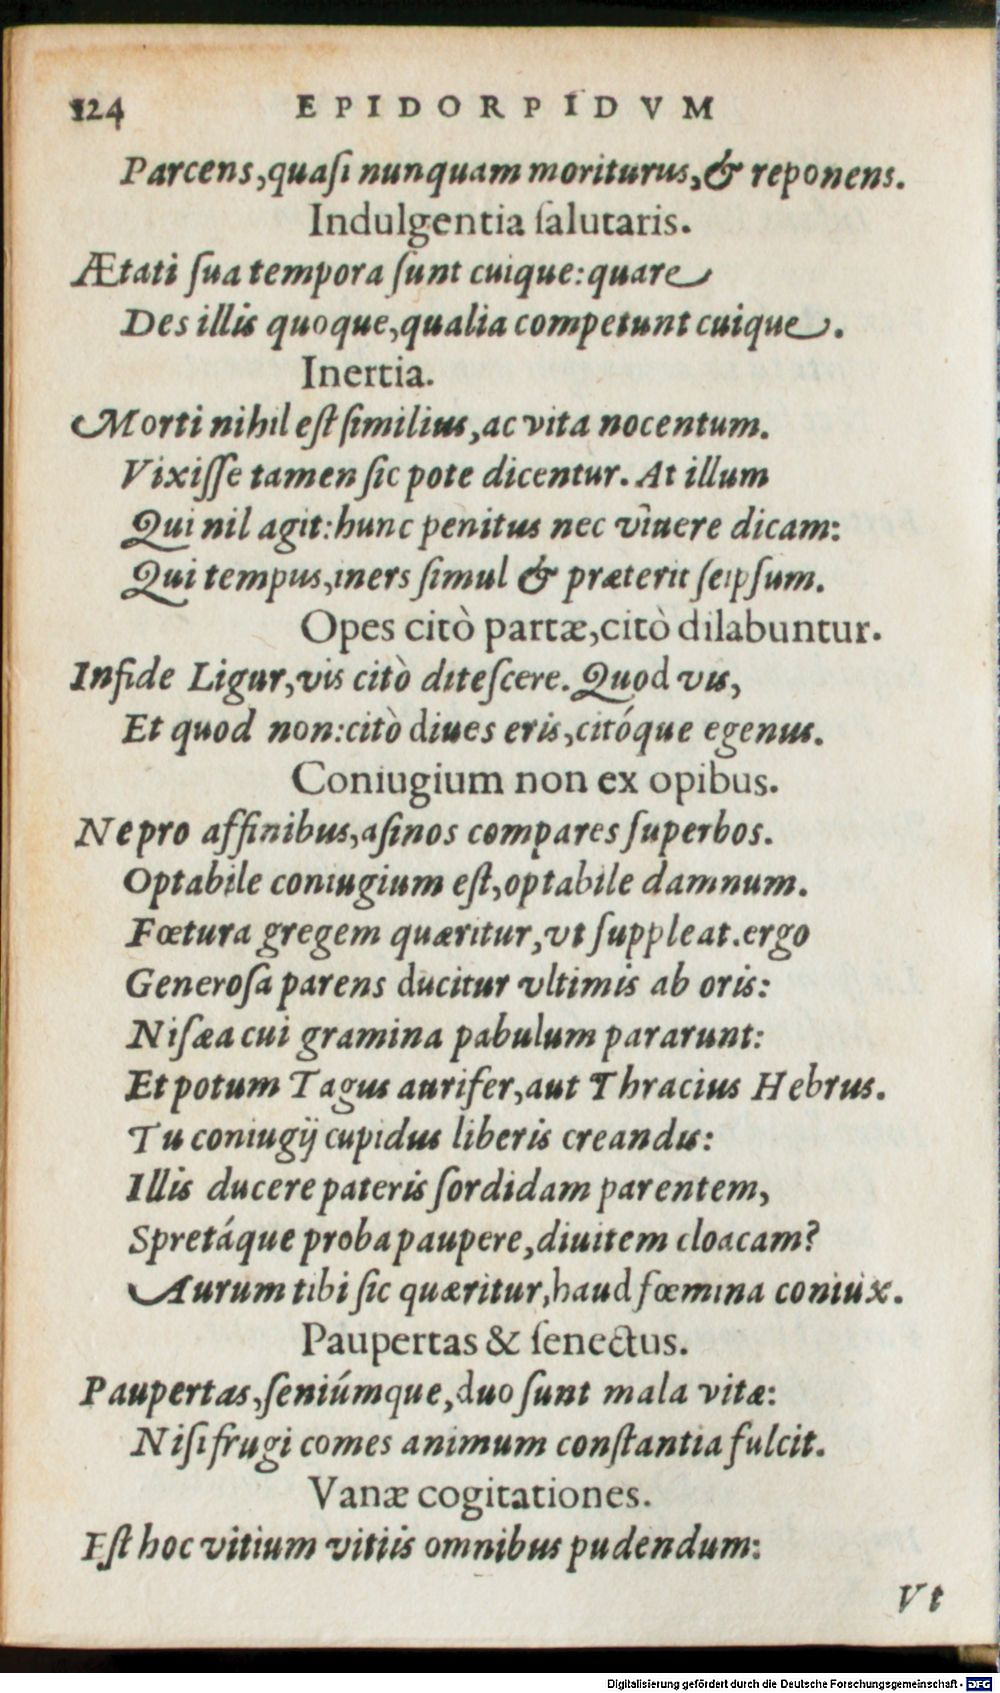 124 EPIDORPIDVM
Parcens, quaſi nunquam moriturus, & reponens.
Indulgentia ſalutaris.
Ætati ſua tempora ſunt cuique: quare
Des illis quoque, qualia competunt cuique.
Inertia.
Morti nihil eſt ſimilius, ac vita nocentum.
Vixiſſe tamen ſic pote dicentur. At illum
Qui nil agit: hunc penitus nec viuere dicam:
Qui tempus, iners ſimul & præterit ſeipſum.
Opes citò partæ, citò dilabuntur.
Infide Ligur, vis citò diteſcere. Quod vis,
Et quod non: citò diues eris, citóque egenus.
Coniugium non ex opibus.
Ne pro affinibus, aſinos compares ſuperbos.
Optabile coniugium eſt, optabile damnum.
Fœtura gregem quæritur, vt ſuppleat. ergo
Generoſa parens ducitur vltimis ab oris:
Niſæa cui gramina pabulum pararunt:
Et potum Tagus aurifer, aut Thracius Hebrus.
Tu coniugij cupidus liberis creandis:
Illis ducere pateris ſordidam parentem,
Spretáque proba paupere, diuitem cloacam?
Aurum tibi ſic quæritur, haud fœmina coniux.
Paupertas & ſenectus.
Paupertas, ſeniúmque, duo ſunt mala vitæ:
Niſi frugi comes animum conſtantia fulcit.
Vanæ cogitationes.
Eſt hoc vitium vitiis omnibus pudendum:
Vt
Digitalisierung gefördert durch die Deutsche Forschungsgemeinschaft - DFG